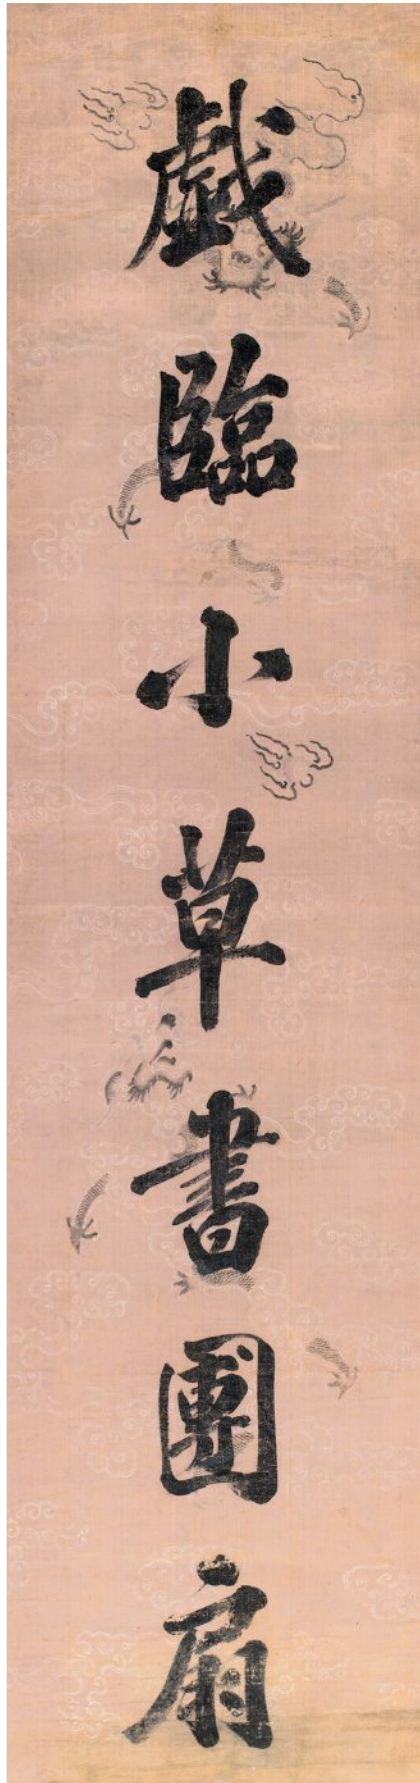 戲臨小草書團扇